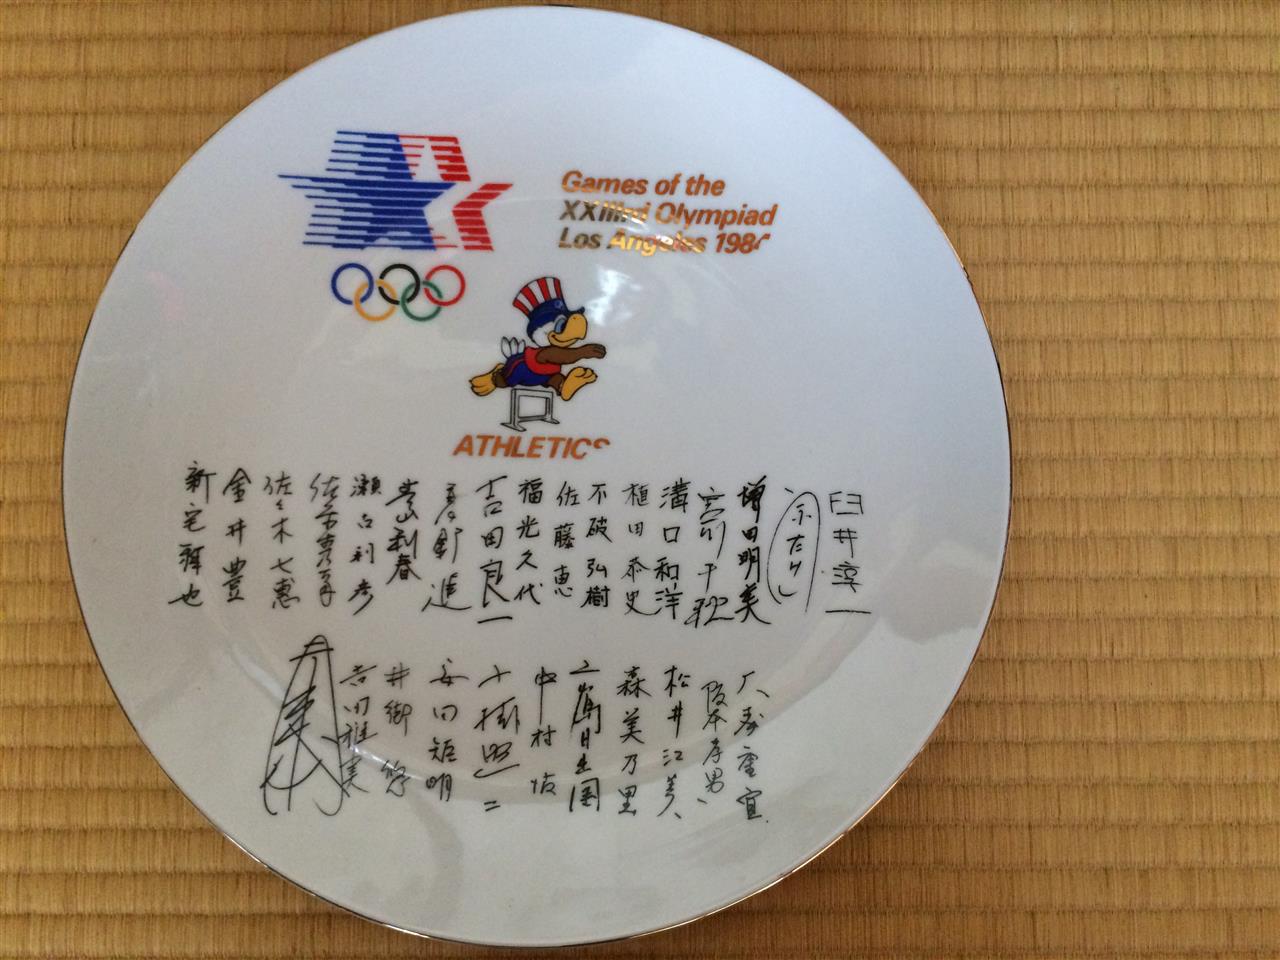 Games of the
XXIIIrd Olympiad
Los Angeles 1984
ATHLETICS
臼井淳一
増田明美
宮川千秋
溝口和洋
植田恭史
不破弘樹
佐藤恵
福光久代
吉田良一
高野進
嵩利春
瀬古利彦
佐々木七恵
金井豊
新宅雅也
阪本孝男
松井江美
森美乃里
中村佑
小掛照二
安田矩明
井街悠
吉田雅美